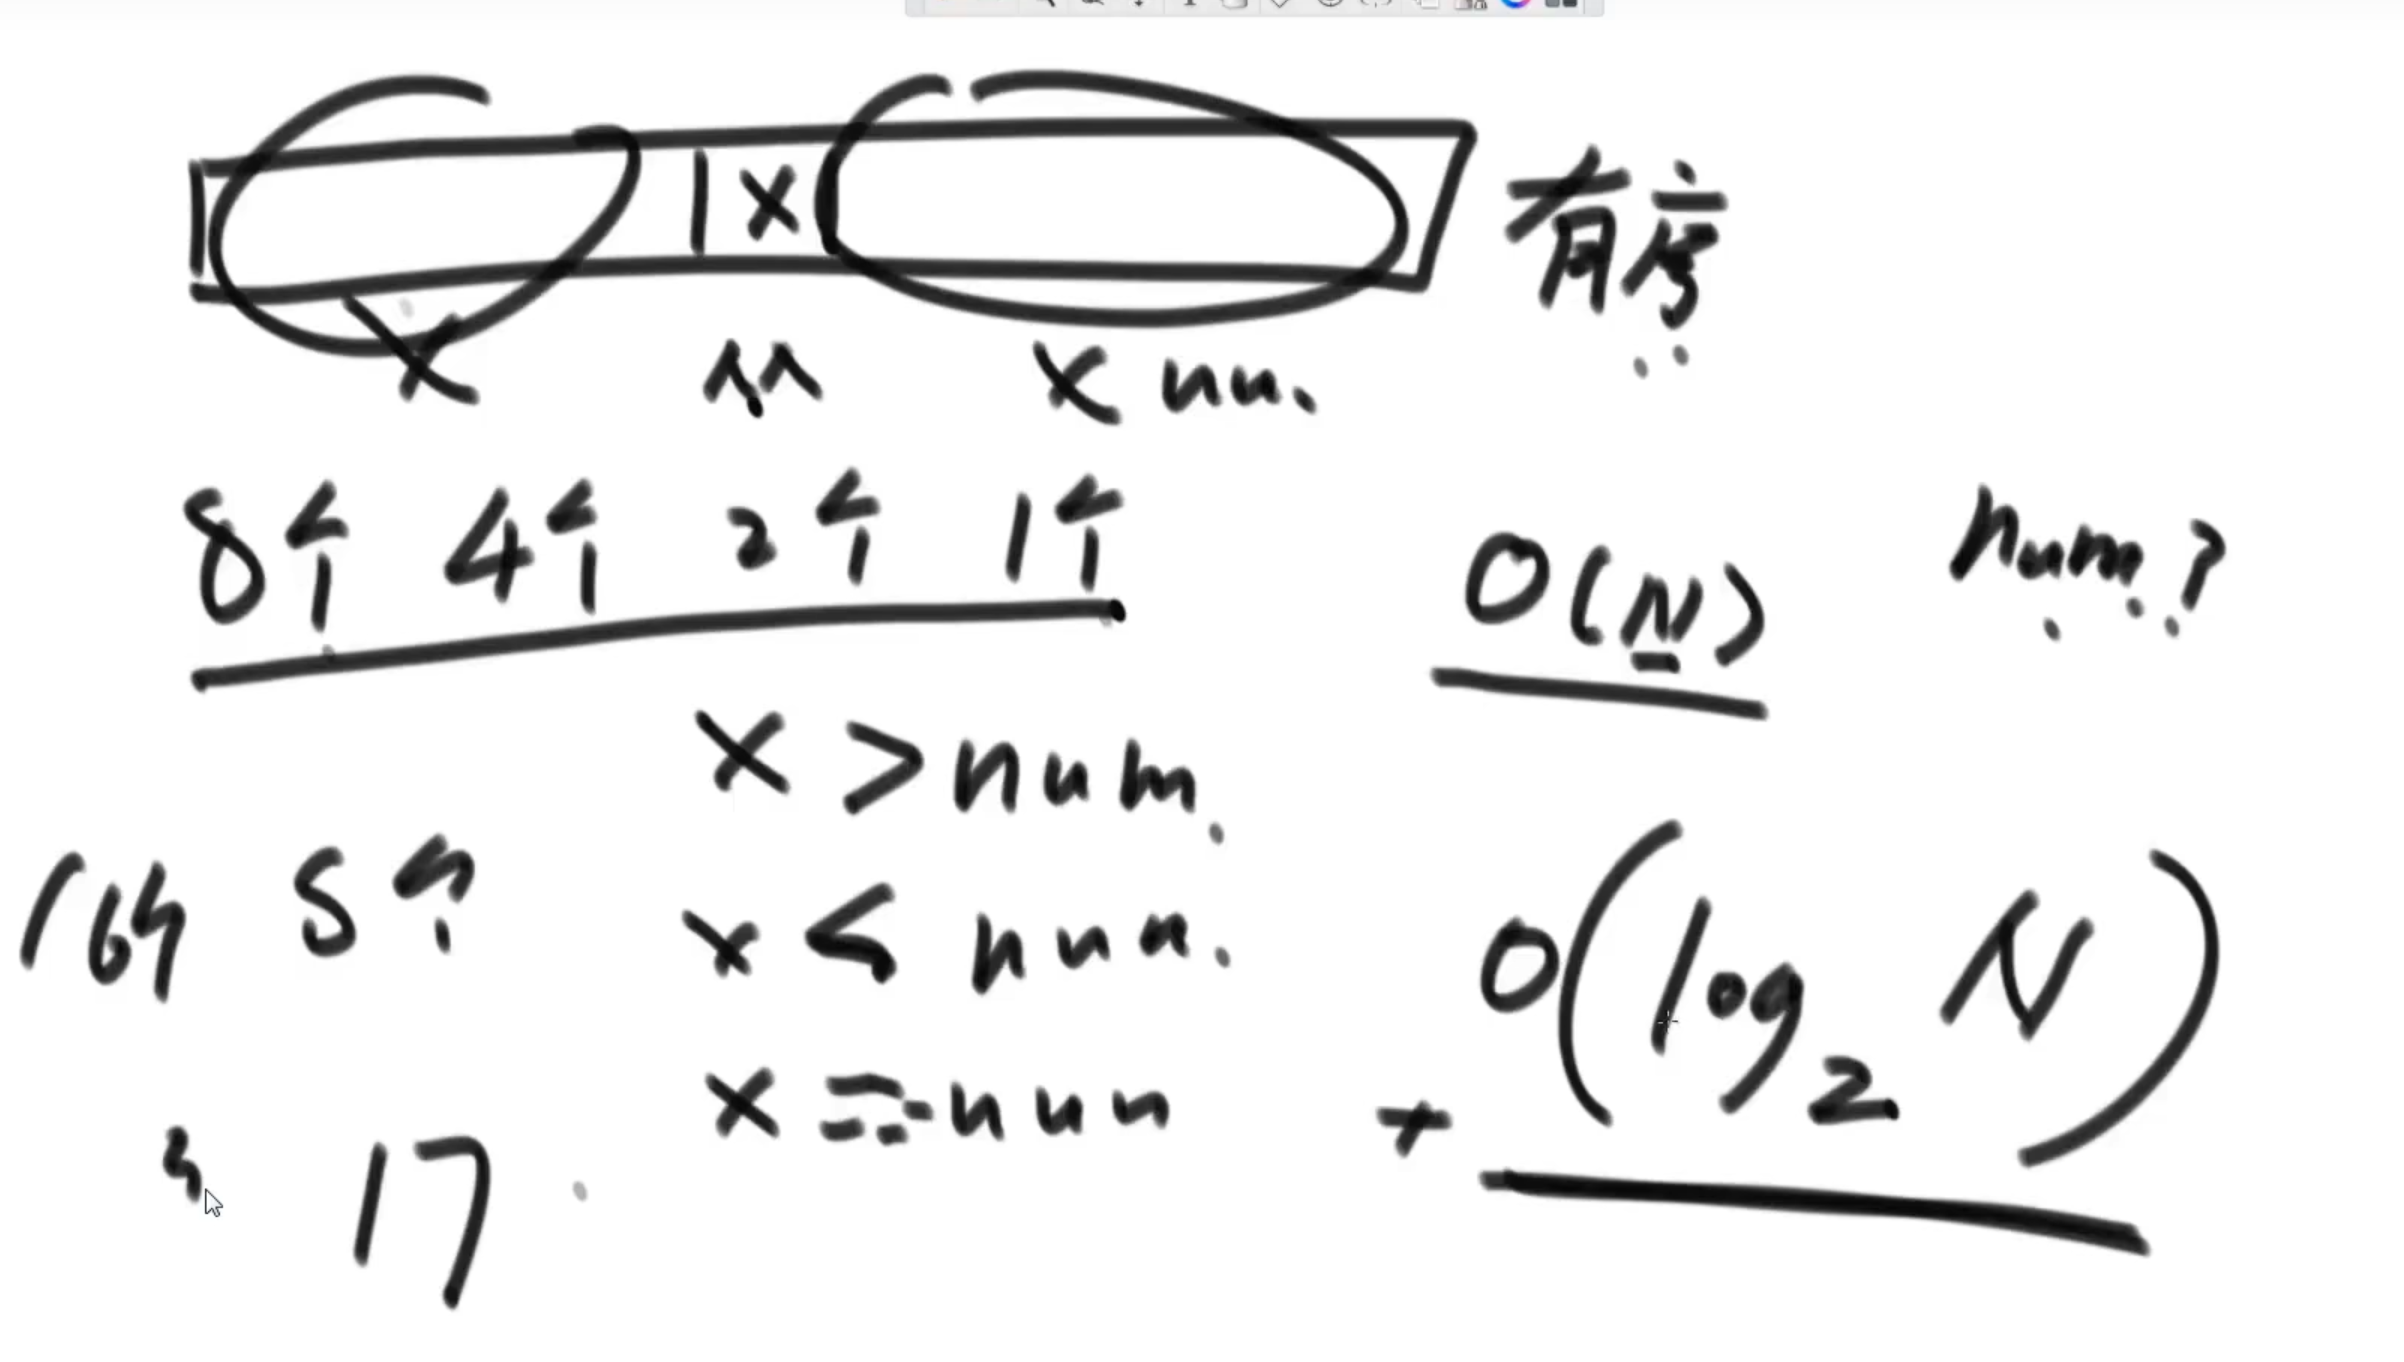 x 有序
x nu.
8个 4个 2个 1个
O(N) num?
x > num.
16个 8个
x < num.
O(log₂N)
x == num
17